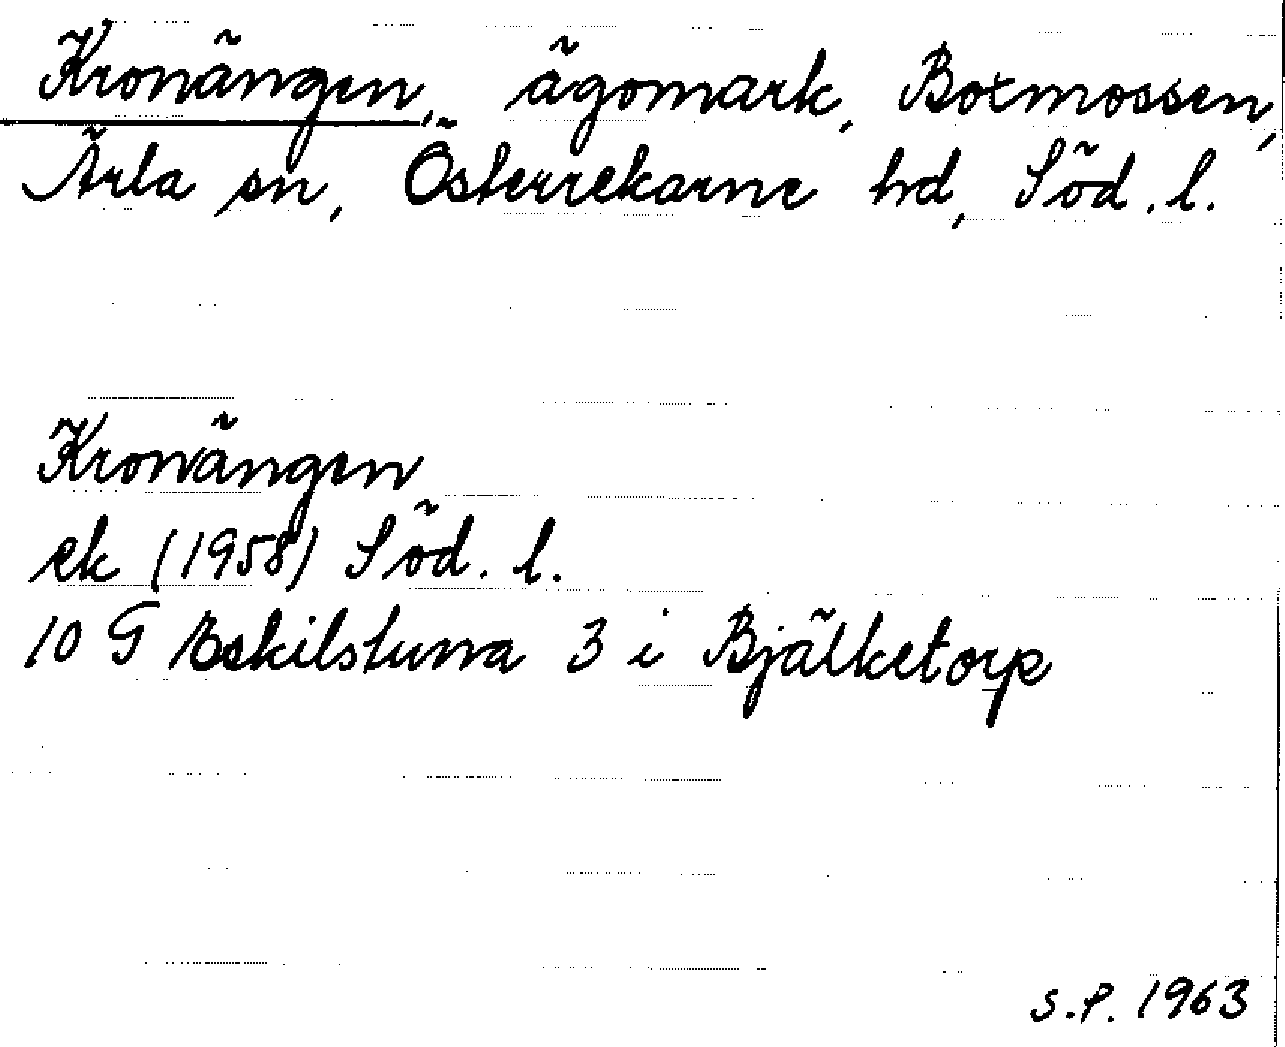 Kronängen, ägomark, Boxmossen,
Ärla sn, Österrekarne hd, Söd. l.
Kronängen
ek (1958) Söd. l.
10 G Eskilstuna 3 i Bjälketorp
S.P. 1963